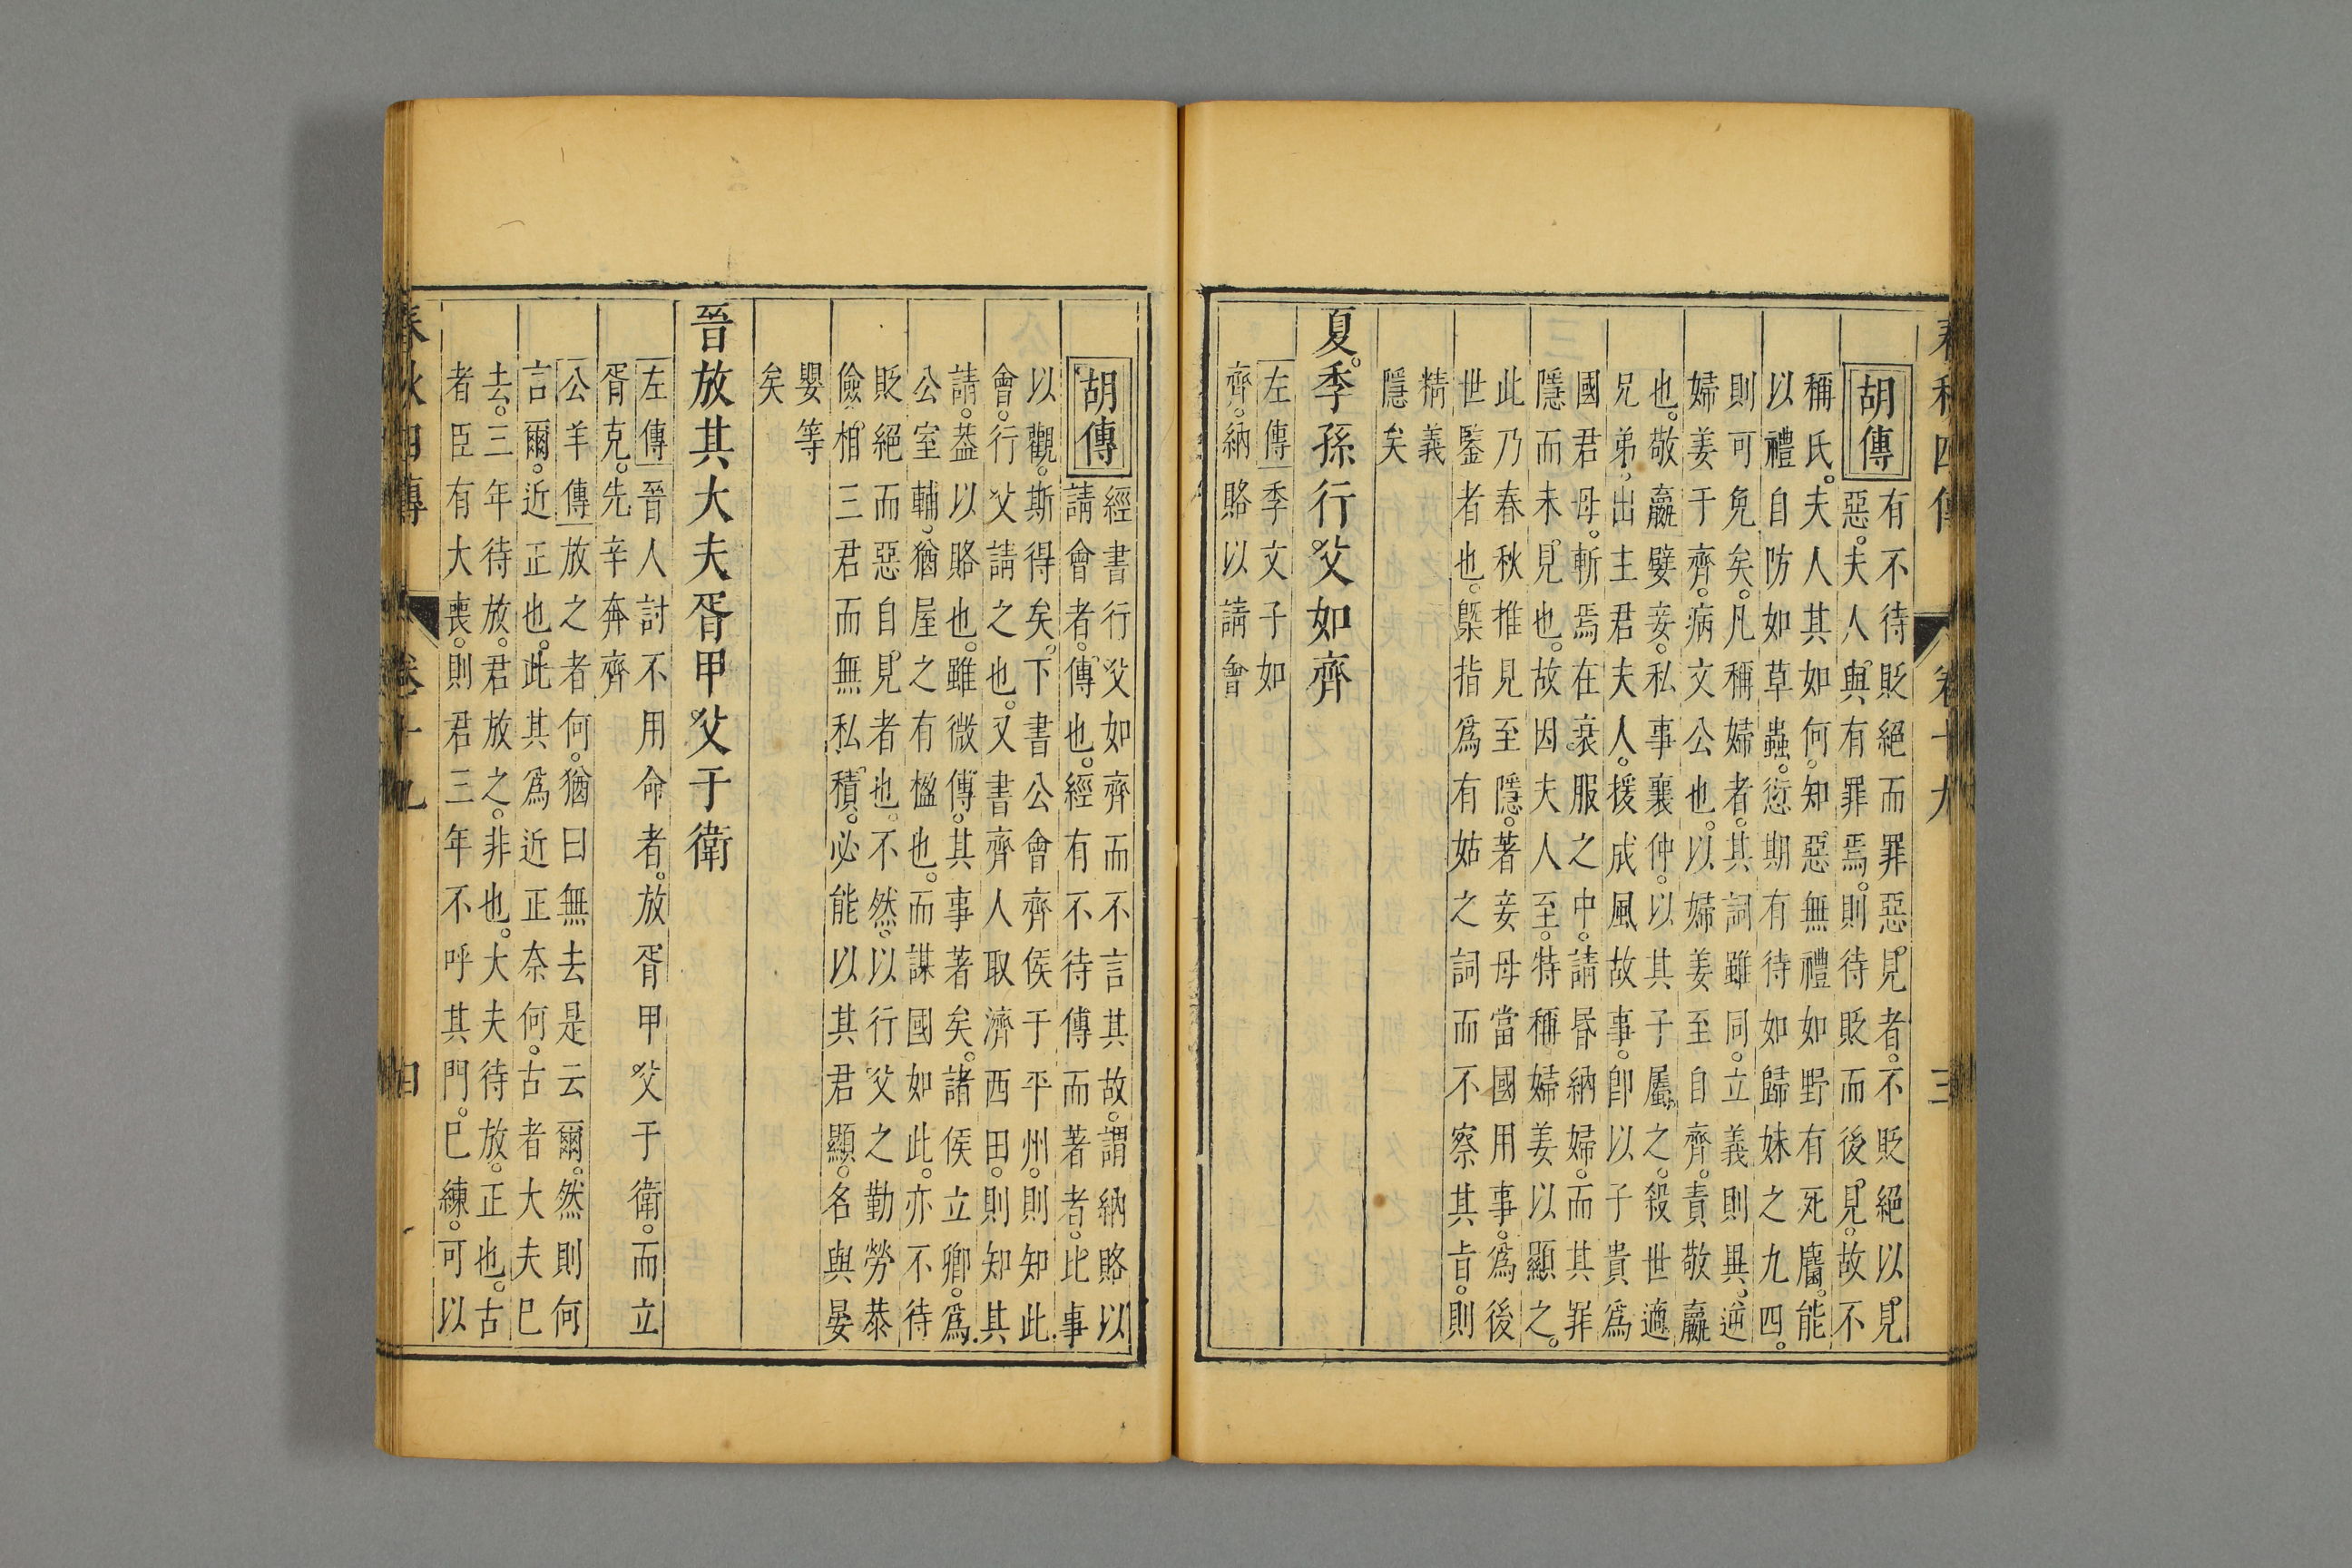 春秋四傳 卷十九 三
胡傳
有不待貶絕而罪惡見者。不貶絕以見
惡。夫人與有罪焉。則待貶而後見。故不
稱氏。夫人其如何。知惡無禮如野有死麕。能
以禮自防如草蟲。愆期有待如歸妹之九四。
則可免矣。凡稱婦者。其詞雖同。立義則異。逆
婦姜于齊。病文公也。以婦姜至自齊。責敬嬴
也。敬嬴嬖妾。私事襄仲。以其子屬之。殺世適
兄弟。出主君夫人。援成風故事。卽以子貴爲
國君母。斬焉在衰服之中。請昏納婦。而其罪
隱而未見也。故因夫人至。特稱婦姜以顯之。
此乃春秋推見至隱。著妾母當國用事。爲後
世鑒者也。槩指爲有姑之詞而不察其旨。則
精義
隱矣
夏。季孫行父如齊
左傳 季文子如
齊。納賂以請會
胡傳
經書行父如齊而不言其故。謂納賂以
請會者。傳也。經有不待傳而著者。比事
以觀。斯得矣。下書公會齊侯于平州。則知此
會。行父請之也。又書齊人取濟西田。則知其
請。葢以賂也。雖微傳。其事著矣。諸侯立卿。爲
公室輔。猶屋之有楹也。而謀國如此。亦不待
貶絕而惡自見者也。不然。以行父之勤勞恭
儉。相三君而無私積。必能以其君顯。名與晏
嬰等
矣
晉放其大夫胥甲父于衛
左傳 晉人討不用命者。放胥甲父于衛。而立
胥克。先辛奔齊
公羊傳 放之者何。猶曰無去是云爾。然則何
言爾。近正也。此其爲近正奈何。古者大夫巳
去。三年待放。君放之。非也。大夫待放。正也。古
者臣有大喪。則君三年不呼其門。巳練。可以
春秋四傳 卷十九 四